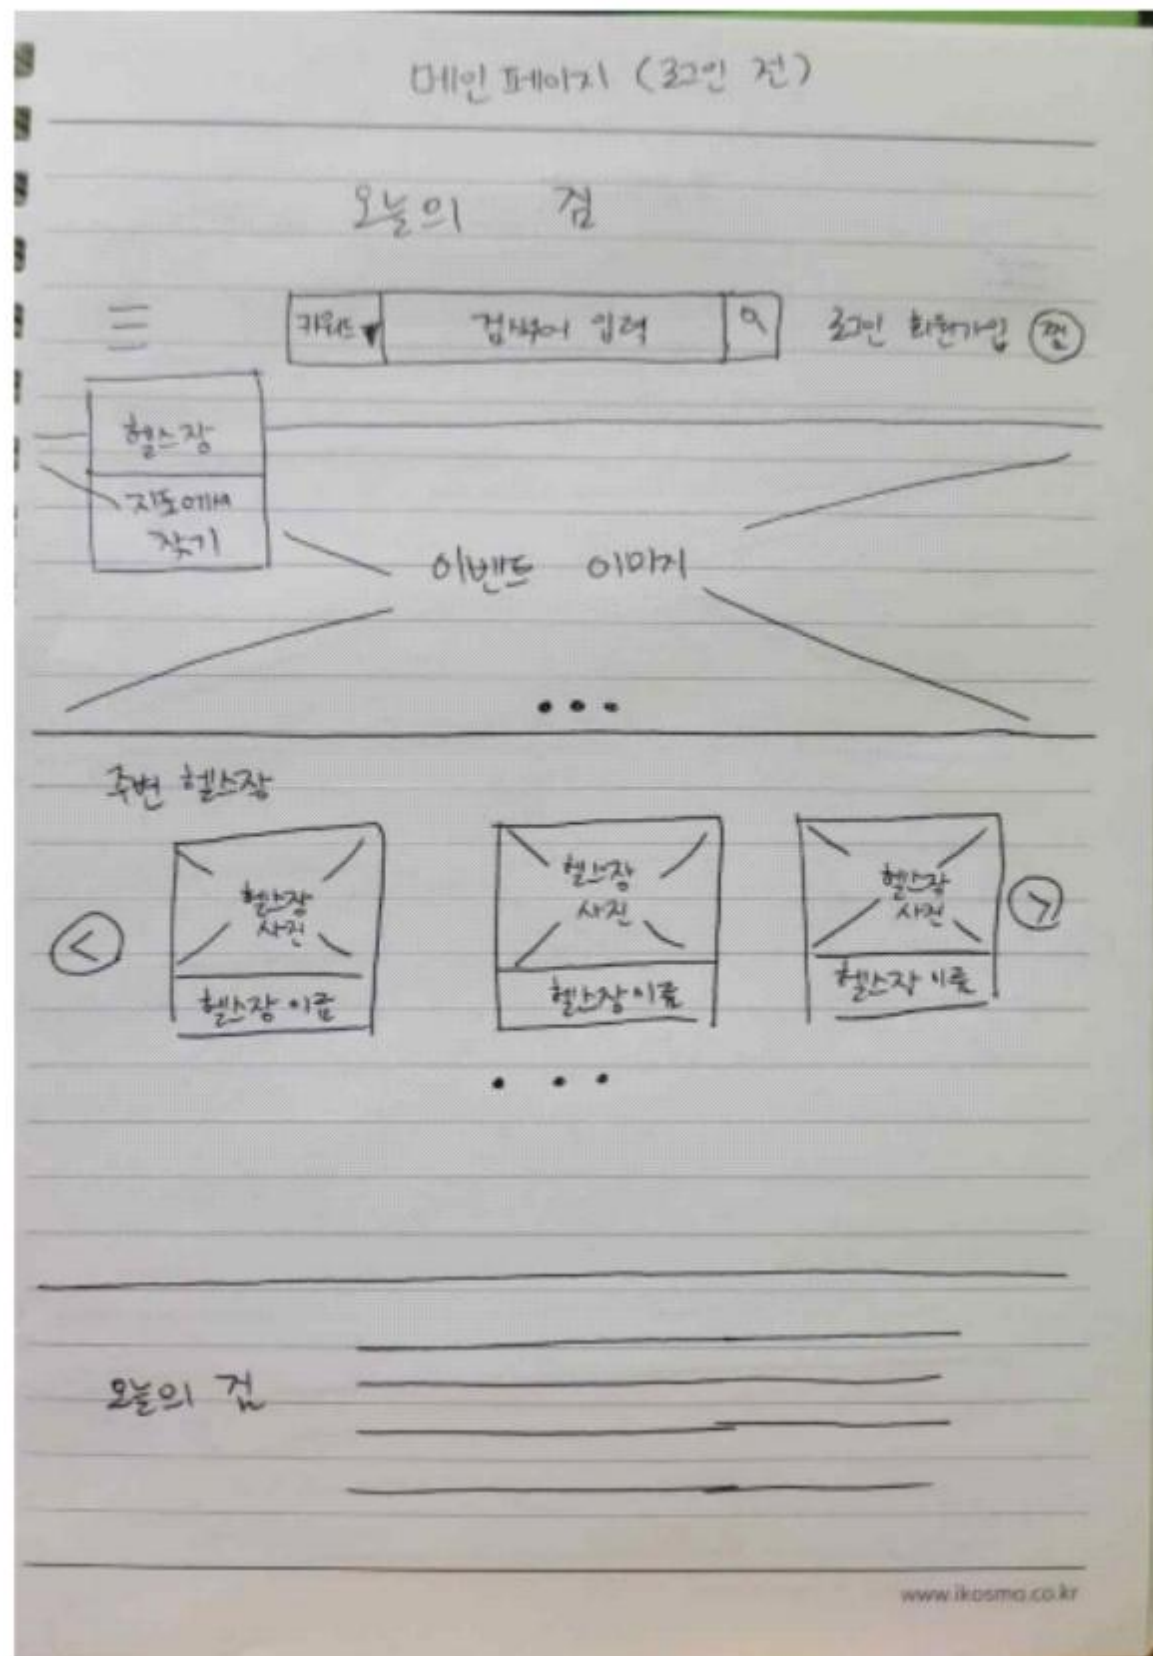 메인 페이지 (로그인 전)
오늘의 짐
키워드 ▼ 검색어 입력 로그인 회원가입 찜
헬스장
지도에서
찾기
이벤트 이미지
...
주변 헬스장
< 헬스장 사진 헬스장 사진 헬스장 사진 >
헬스장 이름 헬스장 이름 헬스장 이름
...
오늘의 짐
www.ikosmo.co.kr